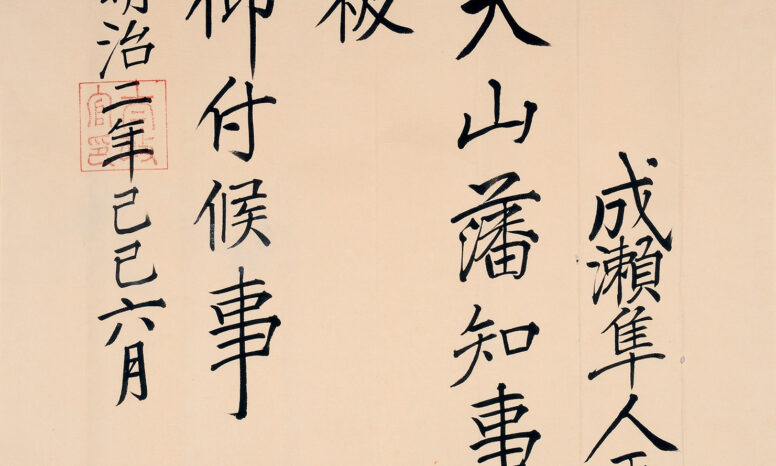 成瀬隼人正
犬山藩知事
被
仰付候事
明治二年己巳六月
太政官印